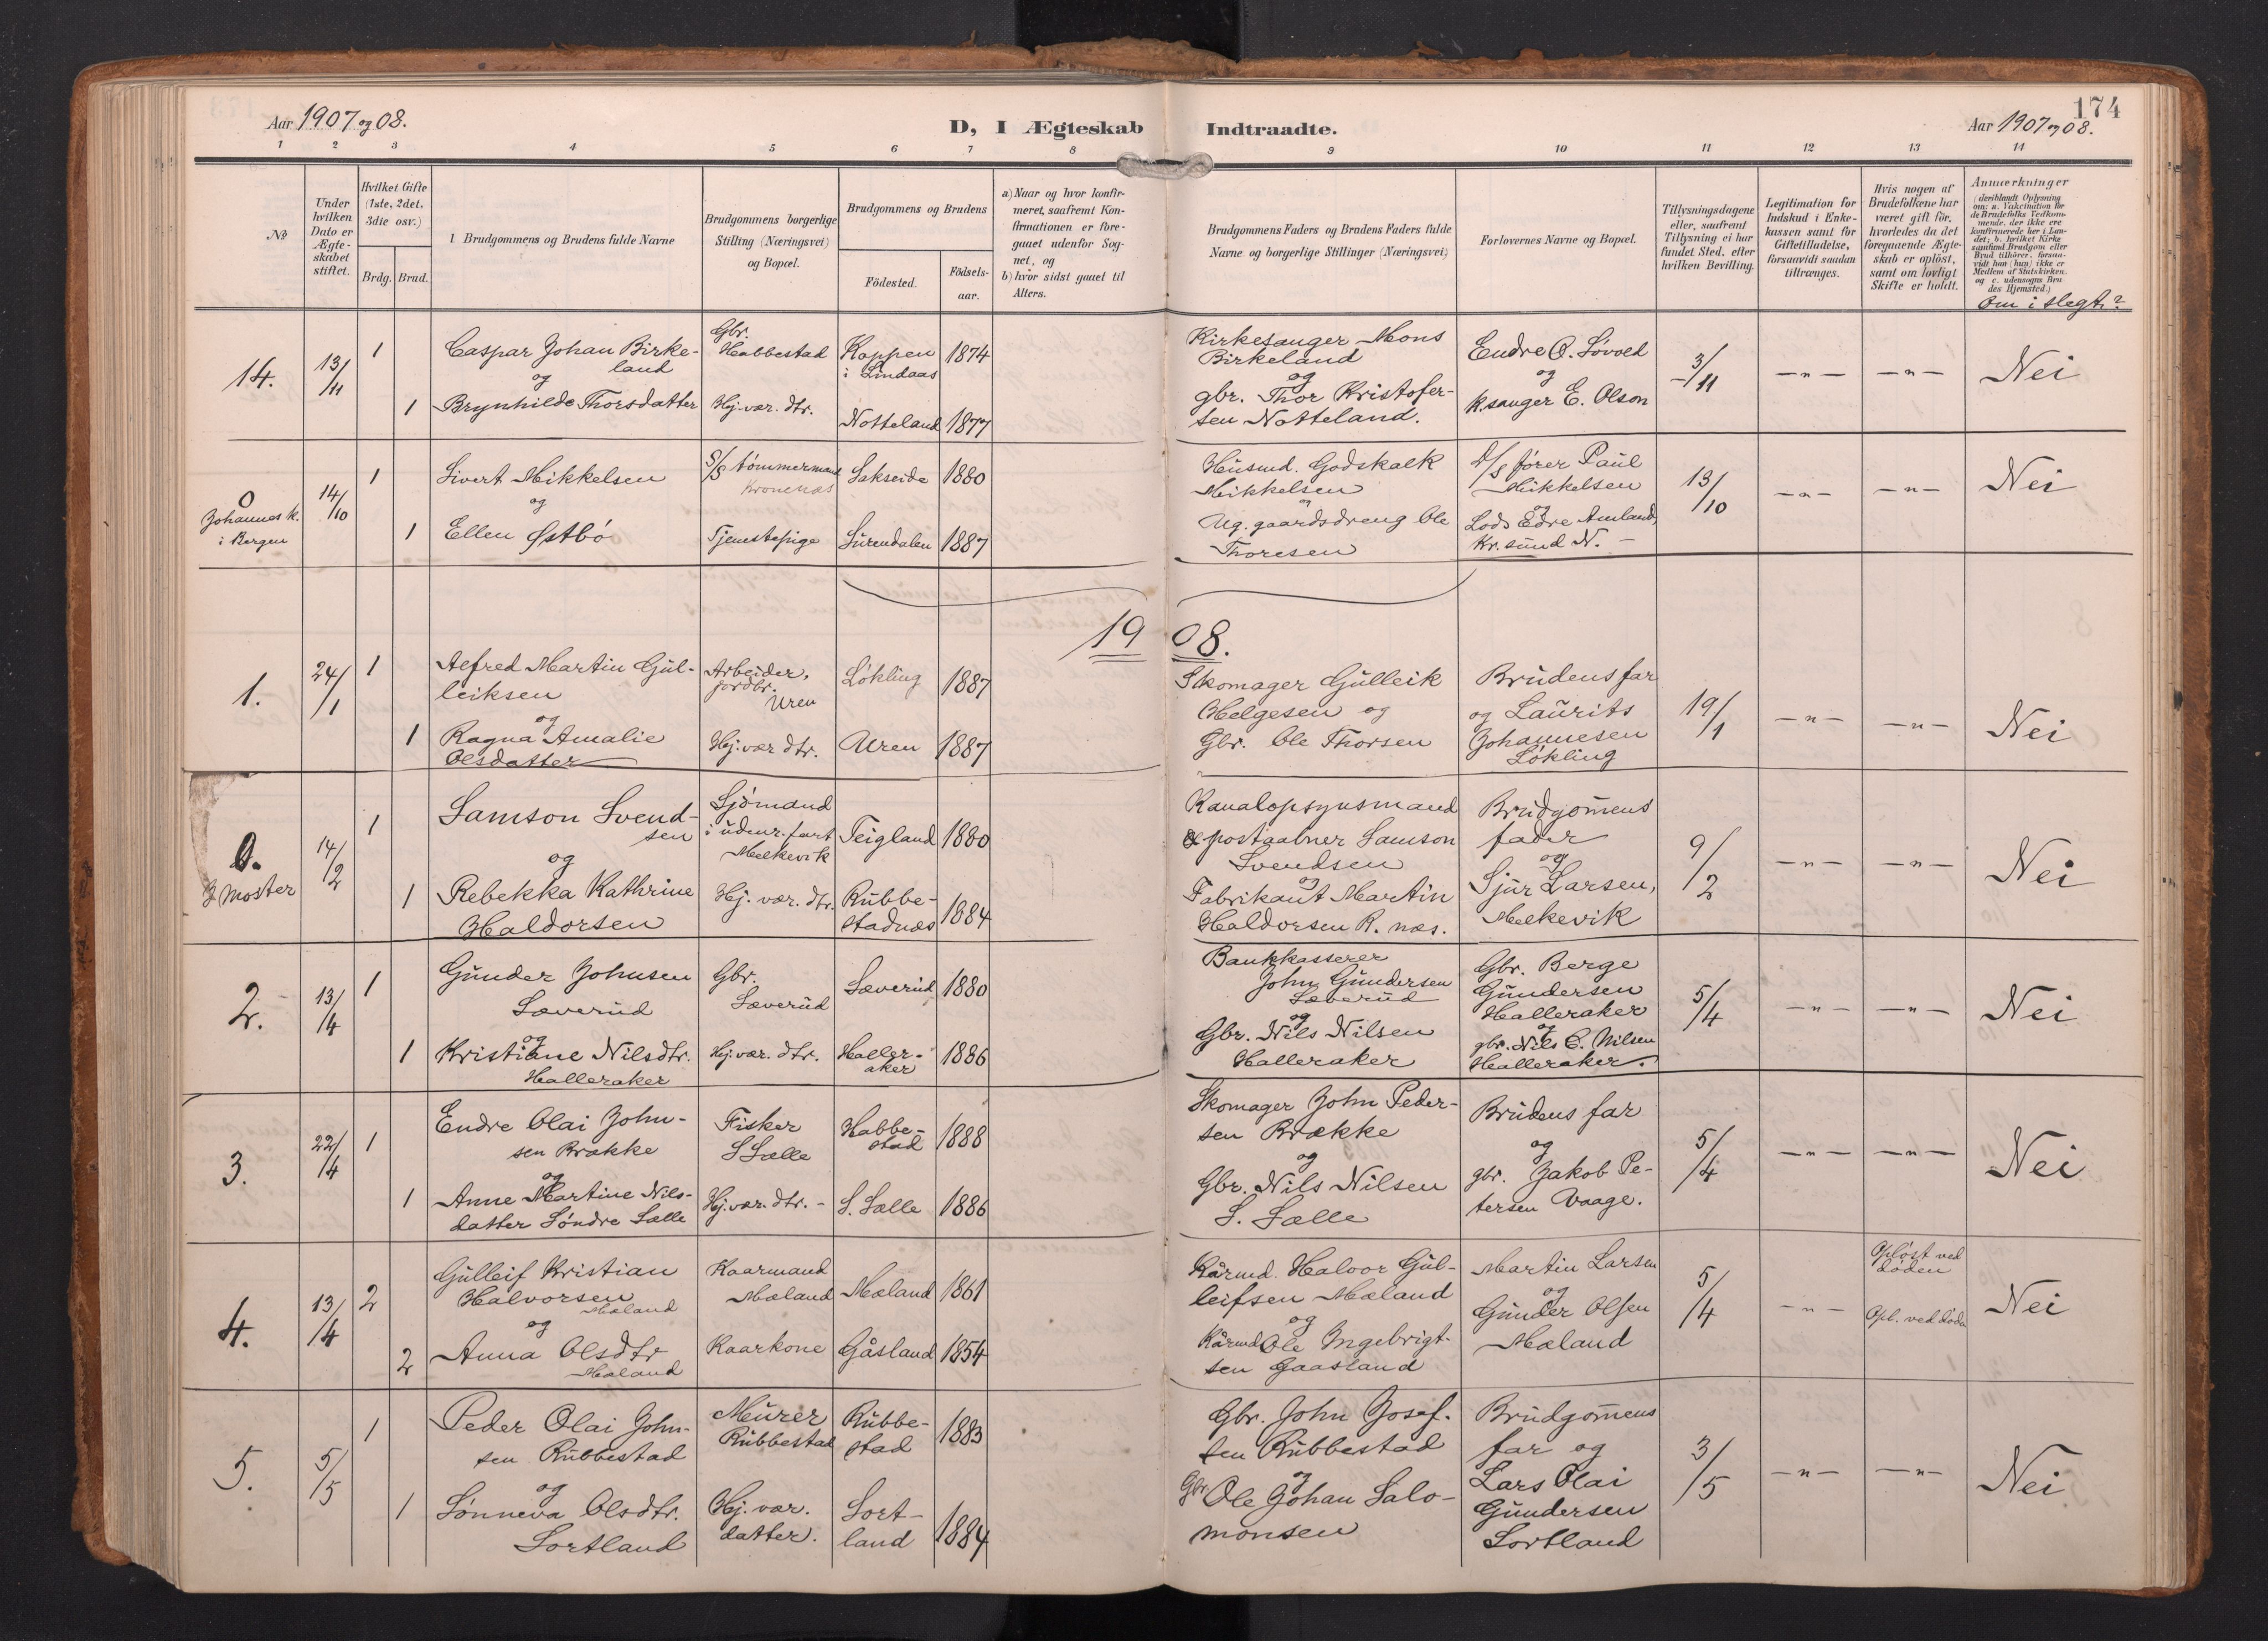 174
Aar 1907 og 08.
D, I Ægteskab Indtraadte.
Aar 1907 og 08.
1 2 3 4 5 6 7 8 9 10 11 12 13 14
No
Under hvilken Dato er Ægteskabet stiftet.
Hvilket Gifte (1ste, 2det, 3die osv.)
Brdg. Brud.
Brudgommens og Brudens fulde Navne
Brudgommens borgerlige Stilling (Næringsvei) og Bopæl.
Brudgommens og Brudens
Födested. Födselsaar.
a) Naar og hvor konfirmeret, saafremt Konfirmationen er foregaaet udenfor Sognet, og
b) hvor sidst gaaet til Alters.
Brudgommens Faders og Brudens Faders fulde Navne og borgerlige Stillinger (Næringsvei)
Forlovernes Navne og Bopæl.
Tillysningsdagene eller, saafremt Tillysning ei har fundet Sted, efter hvilken Bevilling.
Legitimation for Indskud i Enkekassen samt for Giftetilladelse, forsaavidt saadan tiltrænges.
Hvis nogen af Brudefolkene har været gift för, hvorledes da det foregaaende Ægteskab er oplöst, samt om lovligt Skifte er holdt.
Anmærkninger
(deriblandt Oplysning om: a. Vakcination for de Brudefolks Vedkommende, der ikke ere konfirmerede her i Landet; b. hvilket Kirkesamfund Brudgom eller Brud tilhörer, forsaavidt han (hun) ikke er Medlem af Statskirken, og c. udensogns Brudes Hjemsted.)
Om i slegt?
14.
13/11
1
Caspar Johan Birkeland
og
1
Brynhilde Thorsdatter
Gbr.
Habbestad
Hj. vær. dtr.
Koppen
i Lindaas
1874
Notteland 1877
Kirkesanger Mons
Birkeland
og
gbr. Thor Kristofersen Notteland.
Endre O. Søvold
og
k.sanger E. Olson
3/11
—„—
—„—
Nei
0
Johannes k.
i Bergen
14/10
1
Sivert Mikkelsen
og
1
Ellen Østbø
S/S tømmermand
Kronenæs
Tjenestepige
Sakseide 1880
Surendalen 1887
Husmd. Godskalk
Mikkelsen
og
Ug. gaardsdreng Ole
Thoresen
D/S fører Paul
Mikkelsen
og
Lods Edre Amland,
Kr.sund N. —
13/10
—„—
—„—
Nei
1908.
1.
24/1
1
Alfred Martin Gulleiksen
og
1
Ragna Amalie
Olsdatter
Arbeider,
jordbr.
Uren
Hj. vær dtr.
Løkling 1887
Uren 1887
Skomager Gulleik
Helgesen og
Gbr. Ole Thorsen
Brudens far
og Laurits
Johannesen
Løkling
19/1
—„—
—„—
Nei
0.
I Moster
14/2
1
Samson Svendsen
og
1
Rebekka Kathrine
Haldorsen
Sjömand
i udenr. fart
Melkevik
Hj. vær. dtr.
Teigland 1880
Rubbestadnæs 1884
Kanalopsynsmand
& postaabner Samson
Svendsen
og
Fabrikant Martin
Haldorsen R. næs.
Brudgomens
fader
og
Sjur Larsen,
Melkevik
9/2
—„—
—„—
Nei
2.
13/4
1
Gunder Johnsen
Sæverud
og
1
Kristiane Nilsdtr.
Halleraker
Gbr.
Sæverud
Hj. vær. dtr.
Sæverud 1880
Halleraker 1886
Bankkasserer
John Gundersen
Sæverud
og
Gbr. Nils Nilsen
Halleraker
Gbr. Berge
Gundersen
Halleraker
og
gbr. Nils C. Nilsen
Halleraker.
5/4
—„—
—„—
Nei
3.
22/4
1
Endre Olai Johnsen Brække
og
1
Anne Martine Nilsdatter Søndre Sælle
Fisker
S Sælle
Hj. vær. dtr. -
Habbestad 1888
S. Sælle 1886
Skomager John Pedersen Brække
og
Gbr. Nils Nilsen
S. Sælle
Brudens far
og
gbr. Jakob Petersen Vaage.
5/4
—„—
—„—
Nei
4.
13/4
2
Gulleif Kristian
Halvorsen
Mæland
og
2
Anna Olsdtr
Mæland
Kaarmand
Mæland
Kaarkone
Mæland 1861
Gåsland 1854
Kårmd. Halvor Gulleifsen Mæland
og
Kårmd Ole Ingebrigtsen Gaasland
Martin Larsen
og
Gunder Olsen
Mæland
5/4
—„—
Opløst ved
døden
Opl. ved døden
Nei
5.
5/5
1
Peder Olai Johnsen Rubbestad
og
1
Sønneva Olsdtr.
Sortland
Murer
Rubbestad
Hj. vær.
datter.
Rubbestad 1883
Sortland 1884
Gbr. John Josefsen Rubbestad
og
Gbr Ole Johan Salomonsen
Brudgomens
far og
Lars Olai
Gundersen
Sortland
3/5
—„—
—„—
Nei